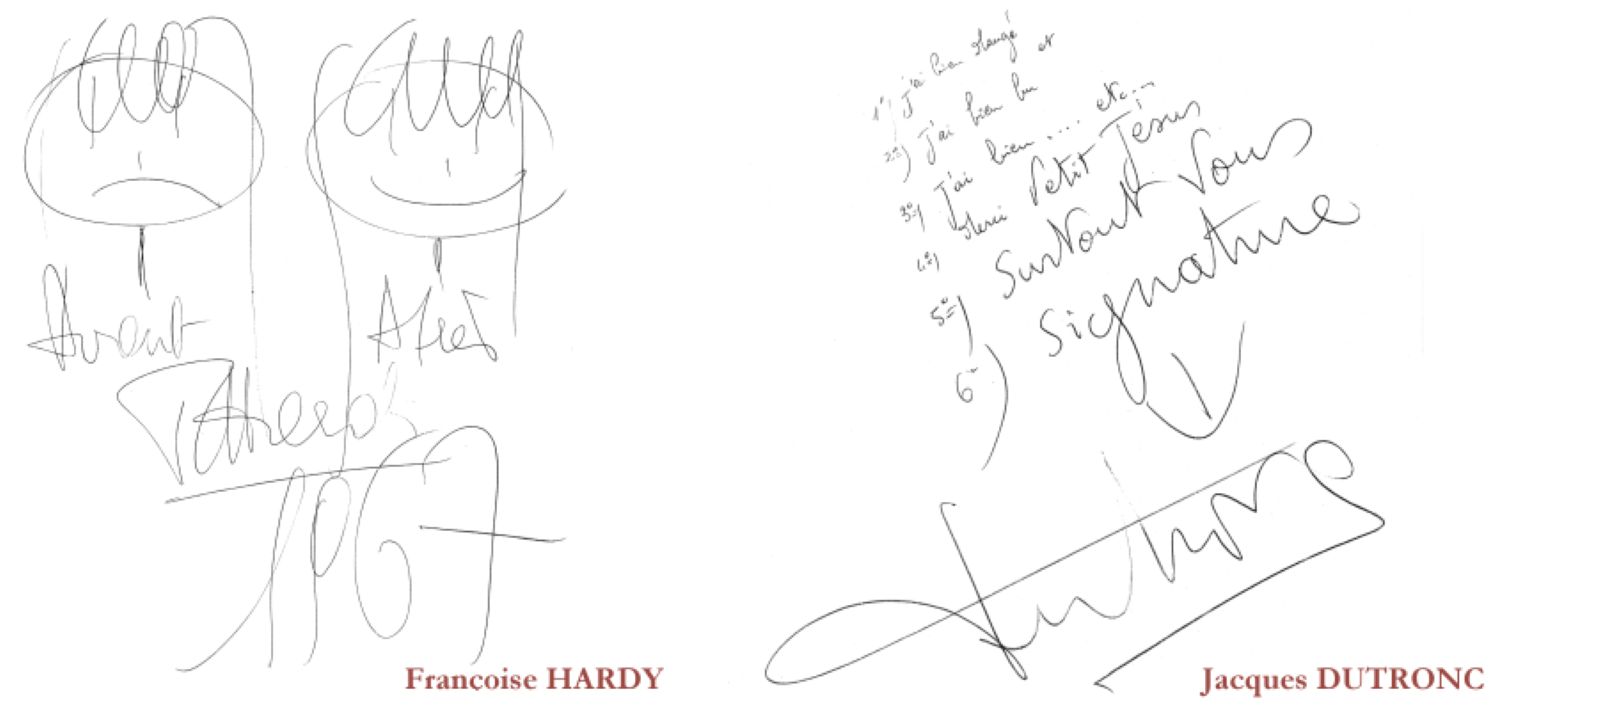 Avant
Après
1967
Françoise HARDY
1°) J'ai bien mangé et
2°) J'ai bien bu
3°) J'ai bien.... etc...
4°) Merci Petit Jésus
5°) Surtout Vous
6°) Signature
Dutronc
Jacques DUTRONC